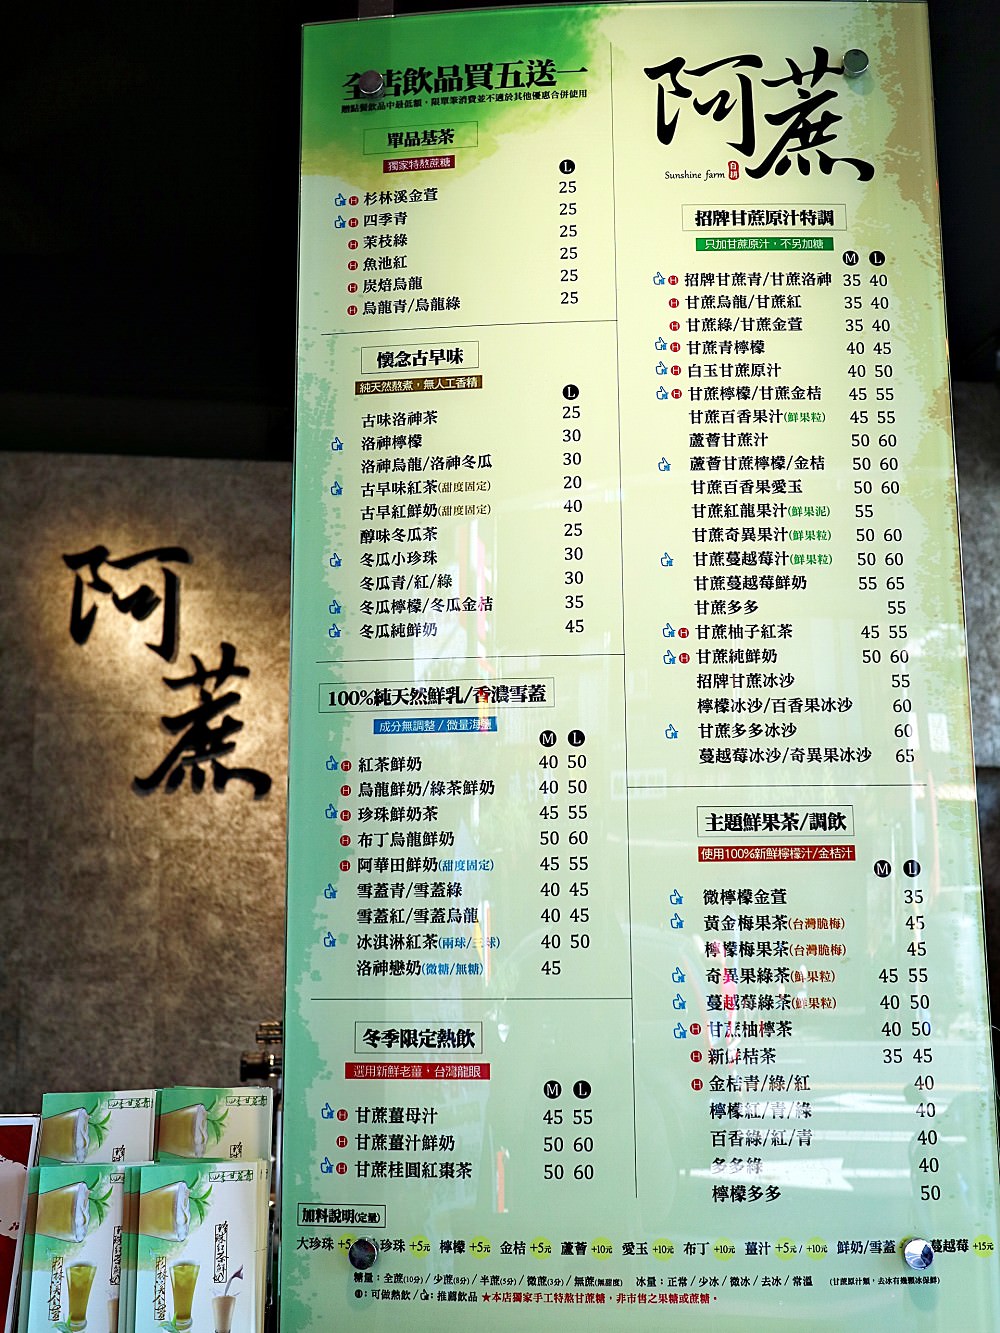 全店飲品買五送一
贈點餐飲品中最低額，限單筆消費並不適於其他優惠合併使用
單品基茶
獨家特熬蔗糖
L
H 杉林溪金萱 25
H 四季青 25
H 茉枝綠 25
H 魚池紅 25
H 炭焙烏龍 25
H 烏龍青/烏龍綠 25
懷念古早味
純天然熬煮，無人工香精
L
古味洛神茶 25
洛神檸檬 30
洛神烏龍/洛神冬瓜 30
古早味紅茶(甜度固定) 20
古早紅鮮奶(甜度固定) 40
醇味冬瓜茶 25
冬瓜小珍珠 30
冬瓜青/紅/綠 30
冬瓜檸檬/冬瓜金桔 35
冬瓜純鮮奶 45
100%純天然鮮乳/香濃雪蓋
成分無調整/微量海鹽
M L
H 紅茶鮮奶 40 50
H 烏龍鮮奶/綠茶鮮奶 40 50
H 珍珠鮮奶茶 45 55
H 布丁烏龍鮮奶 50 60
H 阿華田鮮奶(甜度固定) 45 55
雪蓋青/雪蓋綠 40 45
雪蓋紅/雪蓋烏龍 40 45
冰淇淋紅茶(兩球/三球) 40 50
洛神戀奶(微糖/無糖) 45
冬季限定熱飲
選用新鮮老薑，台灣龍眼
M L
H 甘蔗薑母汁 45 55
H 甘蔗薑汁鮮奶 50 60
H 甘蔗桂圓紅棗茶 50 60
阿蔗
Sunshine farm 自耕
招牌甘蔗原汁特調
只加甘蔗原汁，不另加糖
M L
H 招牌甘蔗青/甘蔗洛神 35 40
H 甘蔗烏龍/甘蔗紅 35 40
H 甘蔗綠/甘蔗金萱 35 40
H 甘蔗青檸檬 40 45
H 白玉甘蔗原汁 40 50
H 甘蔗檸檬/甘蔗金桔 45 55
甘蔗百香果汁(鮮果粒) 45 55
蘆薈甘蔗汁 50 60
蘆薈甘蔗檸檬/金桔 50 60
甘蔗百香果愛玉 50 60
甘蔗紅龍果汁(鮮果泥) 55
甘蔗奇異果汁(鮮果粒) 50 60
甘蔗蔓越莓汁(鮮果粒) 50 60
甘蔗蔓越莓鮮奶 55 65
甘蔗多多 55
H 甘蔗柚子紅茶 45 55
H 甘蔗純鮮奶 50 60
招牌甘蔗冰沙 55
檸檬冰沙/百香果冰沙 60
甘蔗多多冰沙 60
蔓越莓冰沙/奇異果冰沙 65
主題鮮果茶/調飲
使用100%新鮮檸檬汁/金桔汁
M L
微檸檬金萱 35
黃金梅果茶(台灣脆梅) 45
檸檬梅果茶(台灣脆梅) 45
奇異果綠茶(鮮果粒) 45 55
蔓越莓綠茶(鮮果粒) 40 50
H 甘蔗柚檸茶 40 50
H 新鮮桔茶 35 45
H 金桔青/綠/紅 40
檸檬紅/青/綠 40
百香綠/紅/青 40
多多綠 40
檸檬多多 50
加料說明(定量)
大珍珠 +5 珍珠 +5元 檸檬 +5元 金桔 +5元 蘆薈 +10元 愛玉 +10元 布丁 +10元 薑汁 +5元/+10元 鮮奶/雪蓋 蔓越莓 +15元
糖量：全蔗(10分)/少蔗(8分)/半蔗(5分)/微蔗(3分)/無蔗(無甜度) 冰量：正常/少冰/微冰/去冰/常溫 (甘蔗原汁類，去冰有幾顆冰保鮮)
H：可做熱飲/：推薦飲品 ★本店獨家手工特熬甘蔗糖，非市售之果糖或蔗糖。
阿蔗